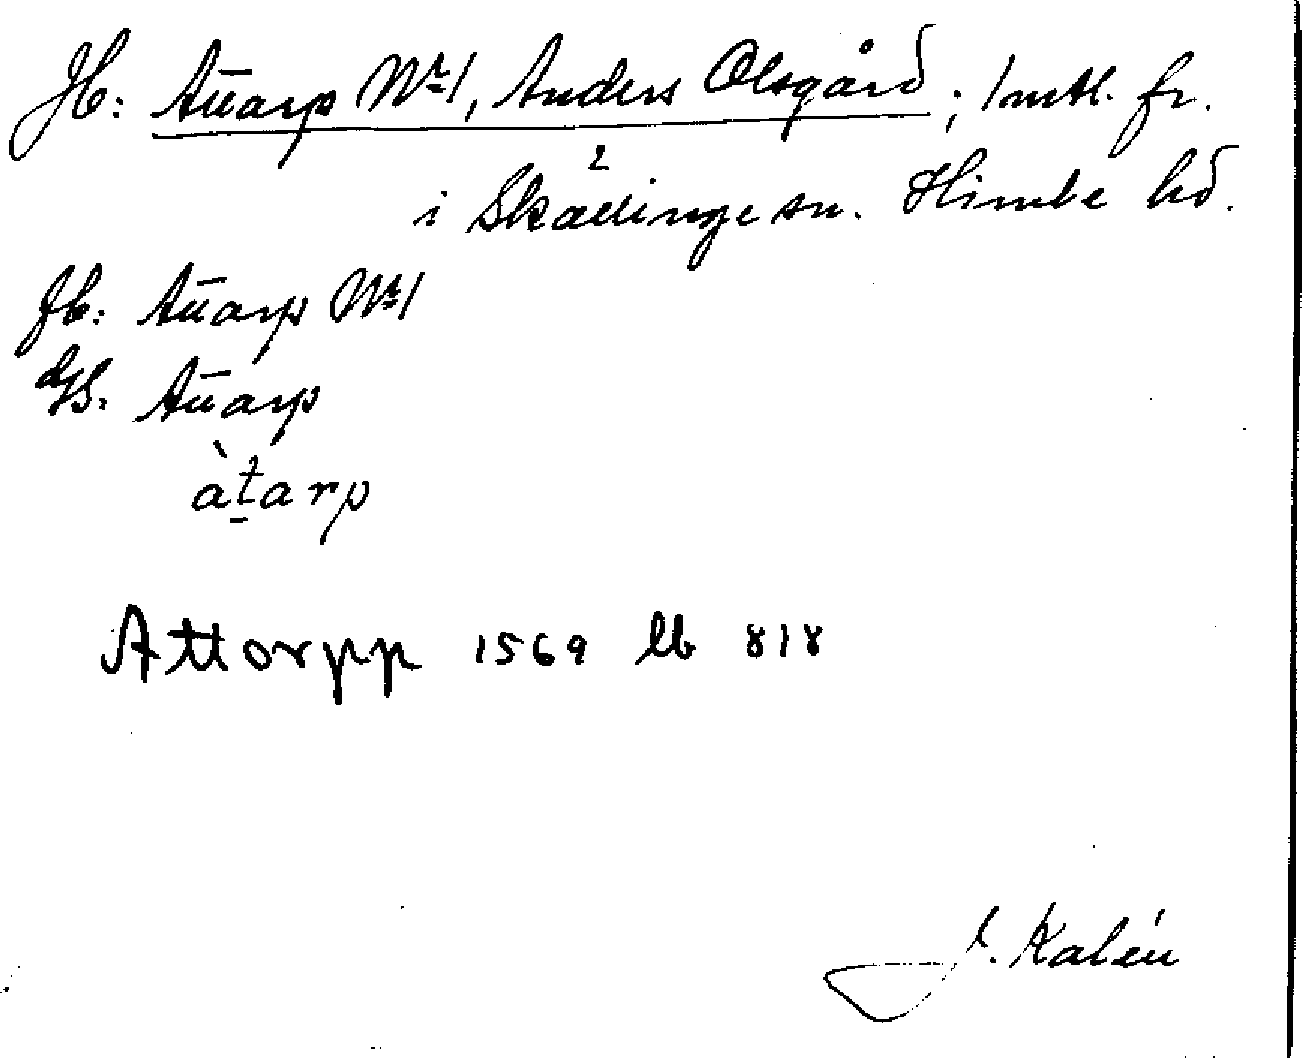 Jb: Attarp Nr 1, Anders Olsgård; 1 mtl. fr.
i Skällinge sn. Himle hd.
Jb: Attarp Nr 1
Attarp
àtarp
Attorpp 1569 lb 818
J. Kalén